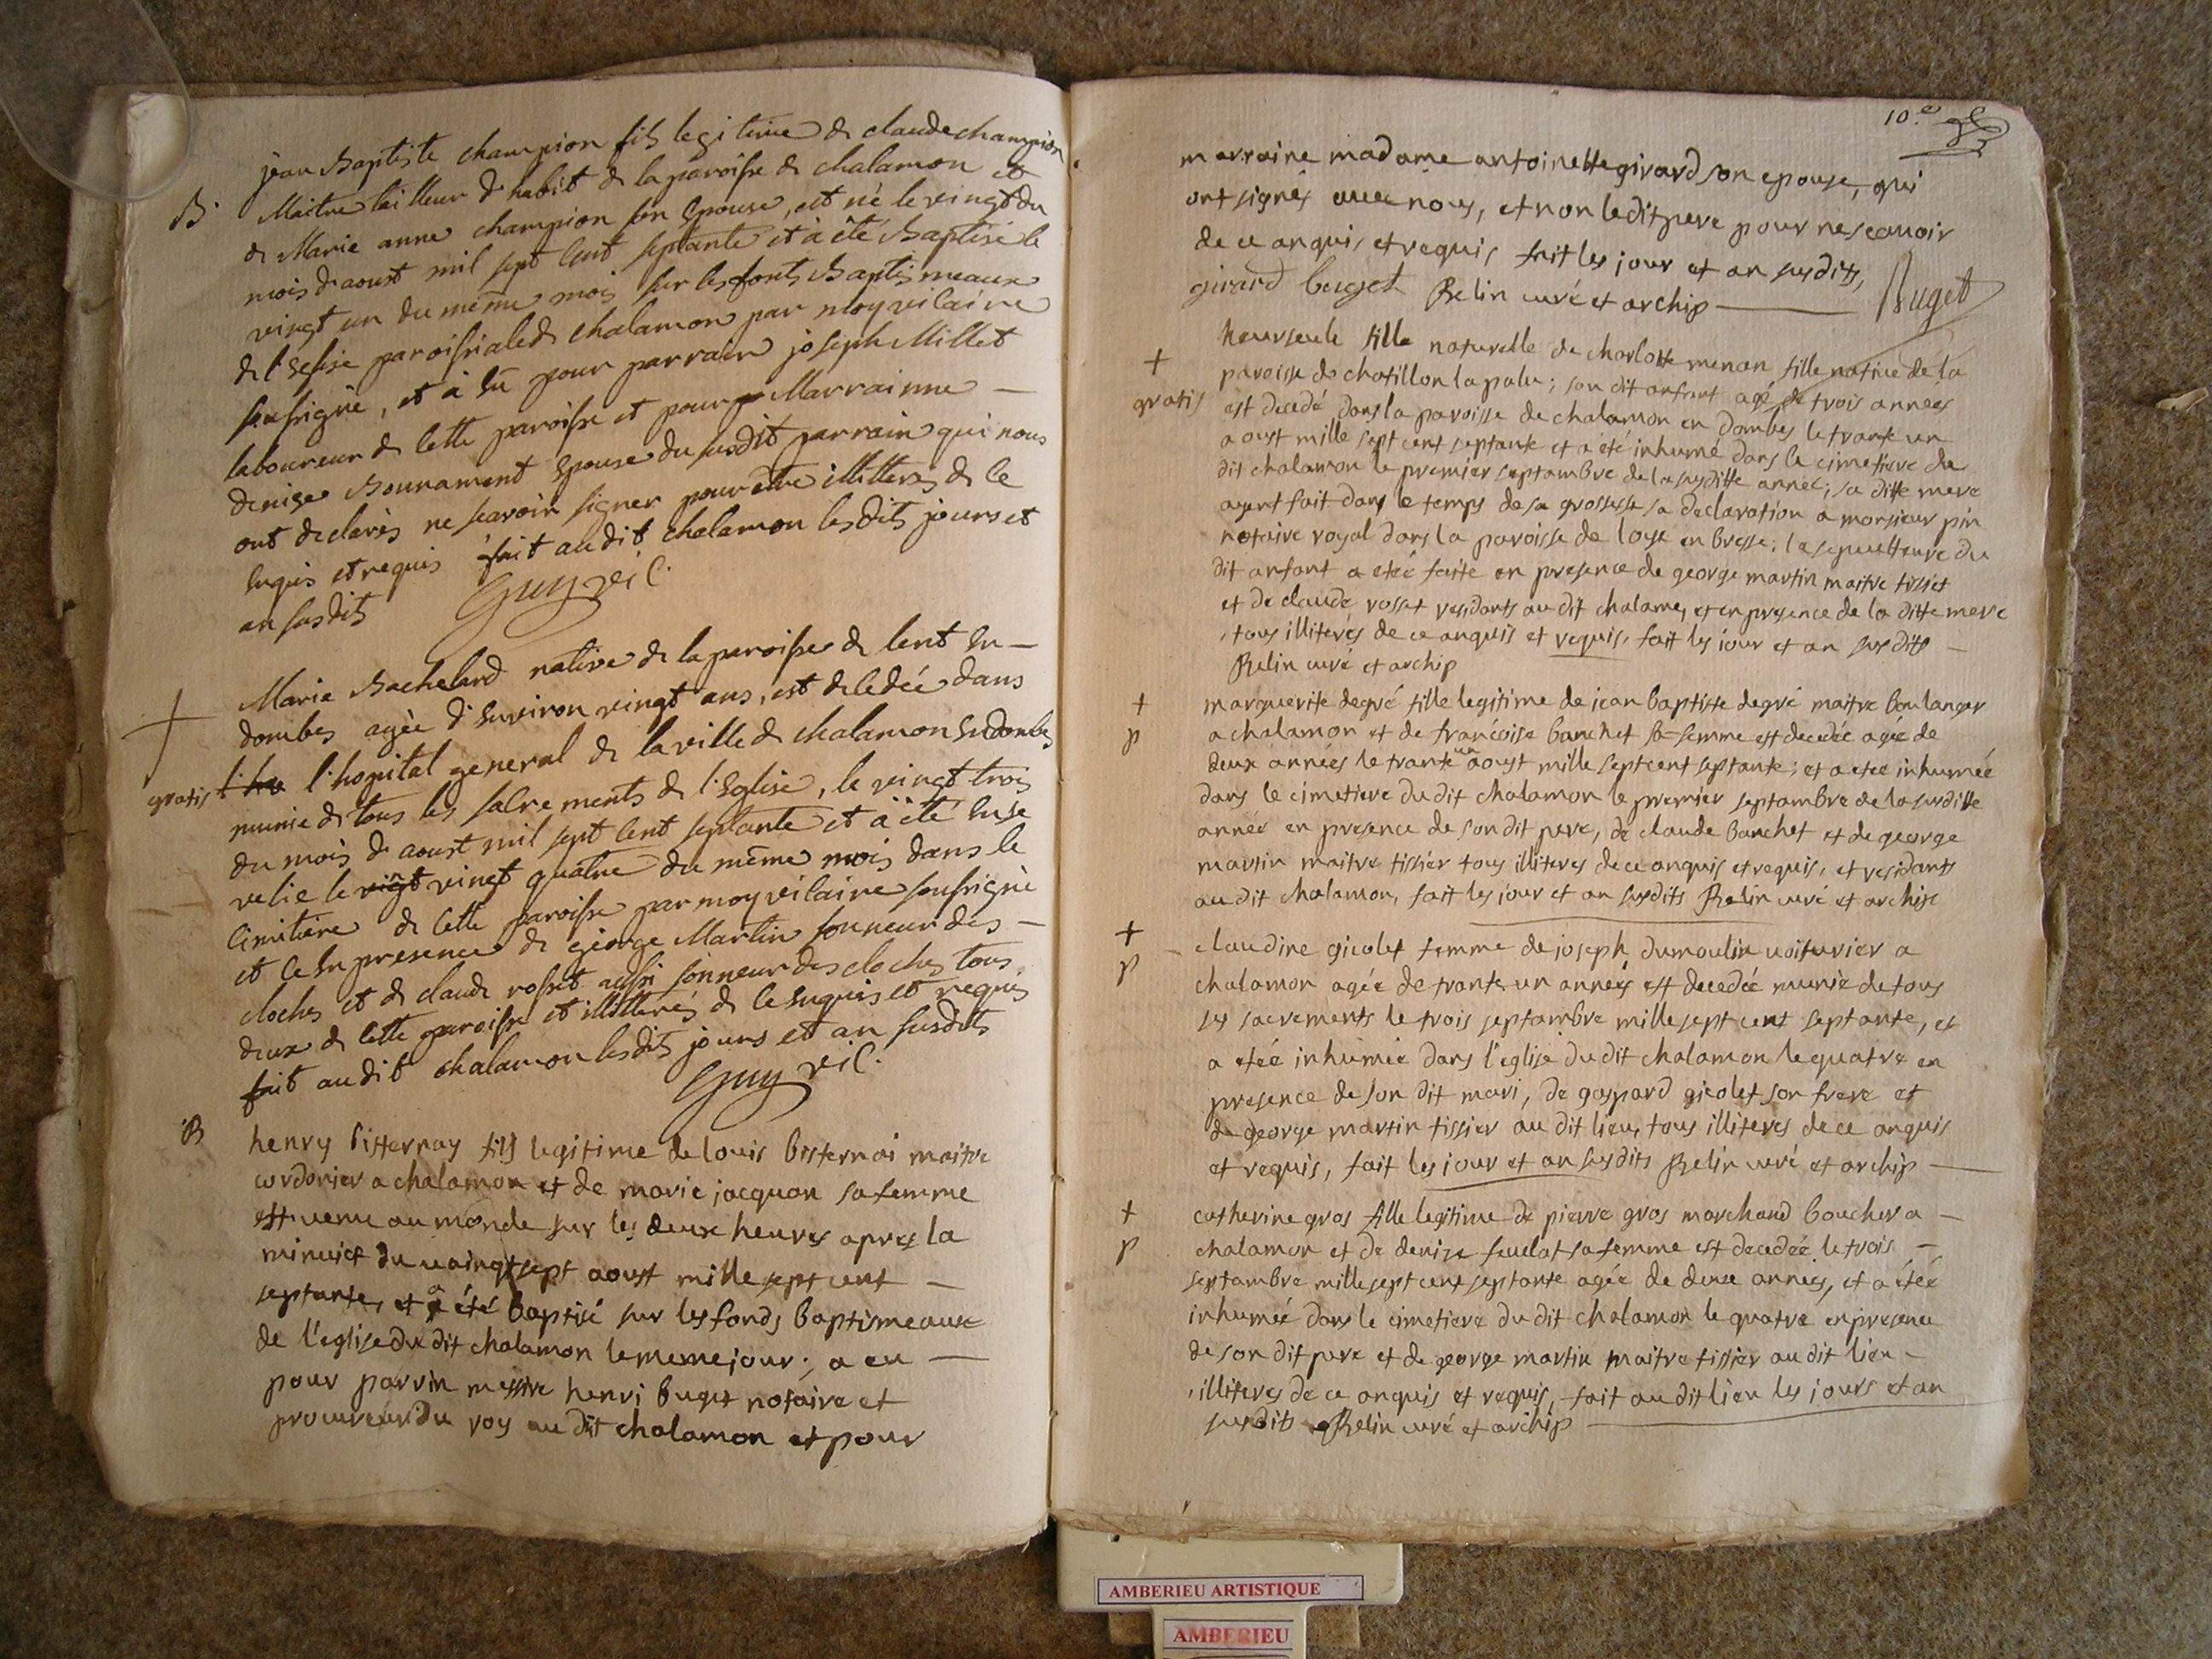 jean Baptiste champion fils legitime de claude champion
B. Maitre tailleur d'habit de la paroisse de chalamon et
de Marie anne champion son Epouse, est né le vingt du
mois d'aoust mil sept Cent septante et à été Baptisé le
vingt un du même mois sur les fonts Baptismeaux
de l'Eglise paroissiale de chalamon par moy vicaire
soussigné, et à Eû pour parrain joseph Millet
laboureur de Cette paroisse et pour Marrainne —
denise Bonnament Epouse du susdit parrain qui nous
ont declarés ne scavoir signer pour être illitterés de Ce
Enquis et requis fait audit chalamon lesdits jours et
an susdits Guy vic.
Marie Bachelard native de la paroisse de lent En —
dombes agèe d'Environ vingt ans, est decedée dans
gratis l'ho l'hopital general de la ville de chalamon En dombes
munie de tous les sacrements de l'Eglise, le vingt trois
du mois d'aoust mil sept Cent septante et à été Ense
velie le vigt vingt quatre du même mois dans le
Cimitière de Cette paroisse par moy vicaire soussigné
et Ce En presence de géorge Martin sonneur des —
cloches et de claude rosset aussi sonneur des cloches tous
deux de Cette paroisse et illitterés de Ce Enquis et requis
fait audit chalamon lesdits jours et an susdits
Guy vic.
B henry bisternay fils legitime de louis bisternai maitre
cordonier a chalamon et de marie jacquan sa femme
est venu au monde sur les deux heures apres la
minuict du vaingt sept aoust mille sept cent —
septante, et a été baptisé sur les fonds baptismeaux
de l'eglise du dit chalamon le meme jour; a eu —
pour parrin messire henri buget notaire et
procureur du roy au dit chalamon et pour
10.e
marraine madame antoinette girard son epouse, qui
ont signés avec nous, et non le dit pere pour ne scauoir
de ce anquis et requis fait les jour et an susdits,
girard buget Relin curé et archip — Buget
heurseule fille naturelle de charlotte menan fille native de la
+ paroisse de chatillon la palu; son dit anfant agé de trois années
gratis est decedé dans la paroisse de chalamon en dombes le trante un
aoust mille sept cent septante et a été inhumé dans le cimetiere du
dit chalamon le premier septambre de la susditte année; sa ditte mere
ayant fait dans le temps de sa grossesse sa declaration a monsieur pin
notaire royal dans la paroisse de loye en bresse; la sepultture du
dit anfant a etée faite en presence de george martin maitre tissiet
et de claude rosset residants au dit chalame, et en presence de la ditte mere
, tous illiterés de ce anquis et requis, fait les jour et an susdits —
Relin curé et archip
+ marguerite degré fille legitime de jean baptiste degré maitre boulanger
p a chalamon et de francoise banchet sa femme est decedée agée de
deux années le trante un aoust mille sept cent septante; et a etée inhumée
dans le cimetiere du dit chalamon le premier septambre de la susditte
année en presence de son dit pere, de claude banchet et de george
martin maitre tissier tous illiteres de ce anquis et requis, et residants
au dit chalamon, fait les jour et an susdits Relin curé et archip
+ claudine gicolet femme de joseph dumoulin voiturier a
p chalamon agée de trante un années est decedée munie de tous
ses sacrements le trois septambre mille sept cent septante, et
a etée inhumée dans l'eglise du dit chalamon le quatre en
presence de son dit mari, de gaspard gicolet son frere et
de george martin tissier au dit lieu, tous illiteres de ce anquis
et requis, fait les jour et an susdits Relin curé et archip —
+ catherine gros fille legitime de pierre gros marchand boucher a —
p chalamon et de denise feuelat sa femme est decedée le trois —
septambre mille sept cent septante agée de deux années, et a étée
inhumée dans le cimetiere du dit chalamon le quatre en presence
de son dit pere et de george martin maitre tissier au dit lieu —
, illiteres de ce anquis et requis, fait au dit lieu les jours et an
susdits Relin curé et archip —
AMBERIEU ARTISTIQUE
AMBERIEU